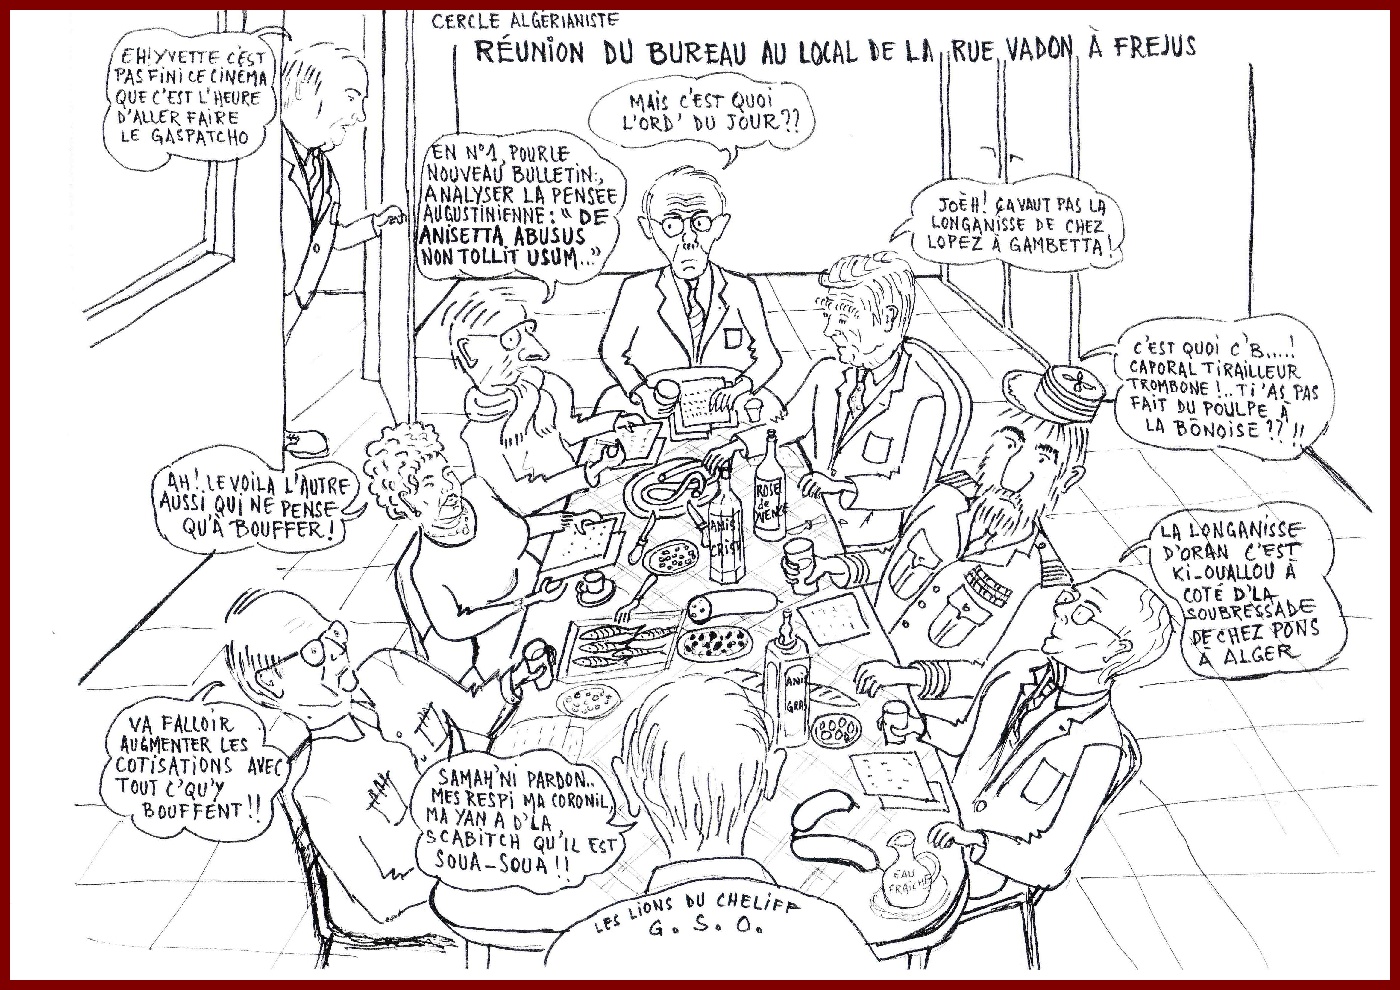 CERCLE ALGÉRIANISTE
RÉUNION DU BUREAU AU LOCAL DE LA RUE VADON À FREJUS
EH! YVETTE C'EST
PAS FINI CE CINEMA
QUE C'EST L'HEURE
D'ALLER FAIRE
LE GASPATCHO
MAIS C'EST QUOI
L'ORD' DU JOUR??
EN N°1, POUR LE
NOUVEAU BULLETIN:,
ANALYSER LA PENSÉE
AUGUSTINIENNE: " DE
ANISETTA ABUSUS
NON TOLLIT USUM..."
JOÈH! ÇA VAUT PAS LA
LONGANISSE DE CHEZ
LOPEZ À GAMBETTA!
C'EST QUOI C'B.....!
CAPORAL TIRAILLEUR
TROMBONE!.. TI'AS PAS
FAIT DU POULPE A
LA BÔNOISE?? !!
AH! LE VOILA L'AUTRE
AUSSI QUI NE PENSE
QU'À BOUFFER!
LA LONGANISSE
D'ORAN C'EST
KI-OUALLOU À
COTÉ D'LA
SOUBRESSADE
DE CHEZ PONS
À ALGER
VA FALLOIR
AUGMENTER LES
COTISATIONS AVEC
TOUT C'QU'Y
BOUFFENT!!
SAMAH'NI PARDON..
MES RESPI MA CORONIL,
MA YAN A D'LA
SCABITCH QU'IL EST
SOUA-SOUA!!
ROSE
de
ANIS
CRIST
ANIS
GRAS
EAU
FRAÎCHE
LES LIONS DU CHELIFF
G. S. O.